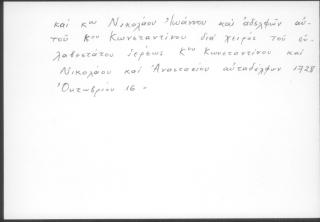 καί κου Νικολάου Ἰωάννου καί ἀδελφῶν αὐ-
τοῦ κου Κωνσταντίνου διά χειρός τοῦ εὐ-
λαβεστάτου ἱερέως κου Κωνσταντίνου καί
Νικολάου καί Ἀναστασίου αὐταδέλφων 1728
Ὀκτωβρίου 16 -